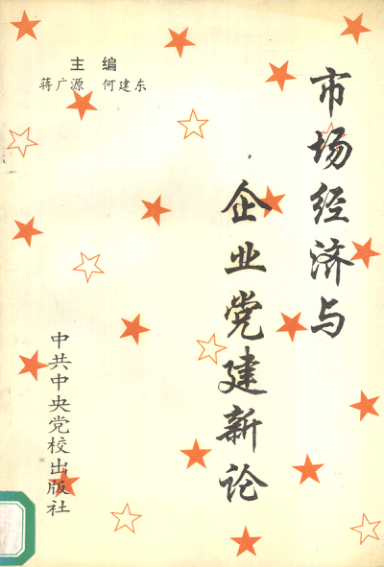 主编
蒋广源 何建东
市场经济与
企业党建新论
中共中央党校出版社